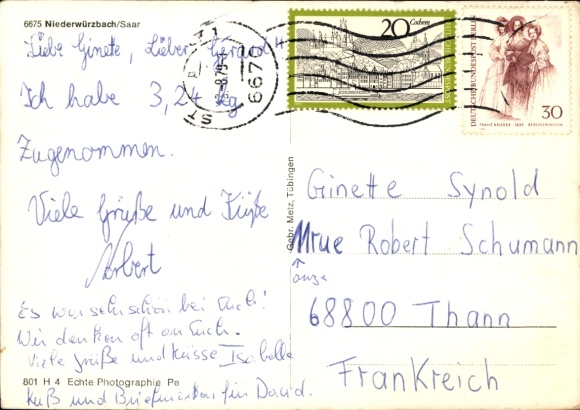 6675 Niederwürzbach/Saar
Liebe Ginette, Lieber Gerard!
Ich habe 3,24 kg
Zugenommen.
Viele Grüße und Küße
Norbert
Es war sehr schön bei Euch!
Wir denken oft an Euch.
Viele Grüße und Küsse Isabelle
Kuß und Briefmarken für David.
801 H 4 Echte Photographie
Gebr. Metz, Tübingen
667
20 Cochem
DEUTSCHE BUNDESPOST BERLIN
30
Ginette Synold
11 rue Robert Schumann
onze
68800 Thann
Frankreich